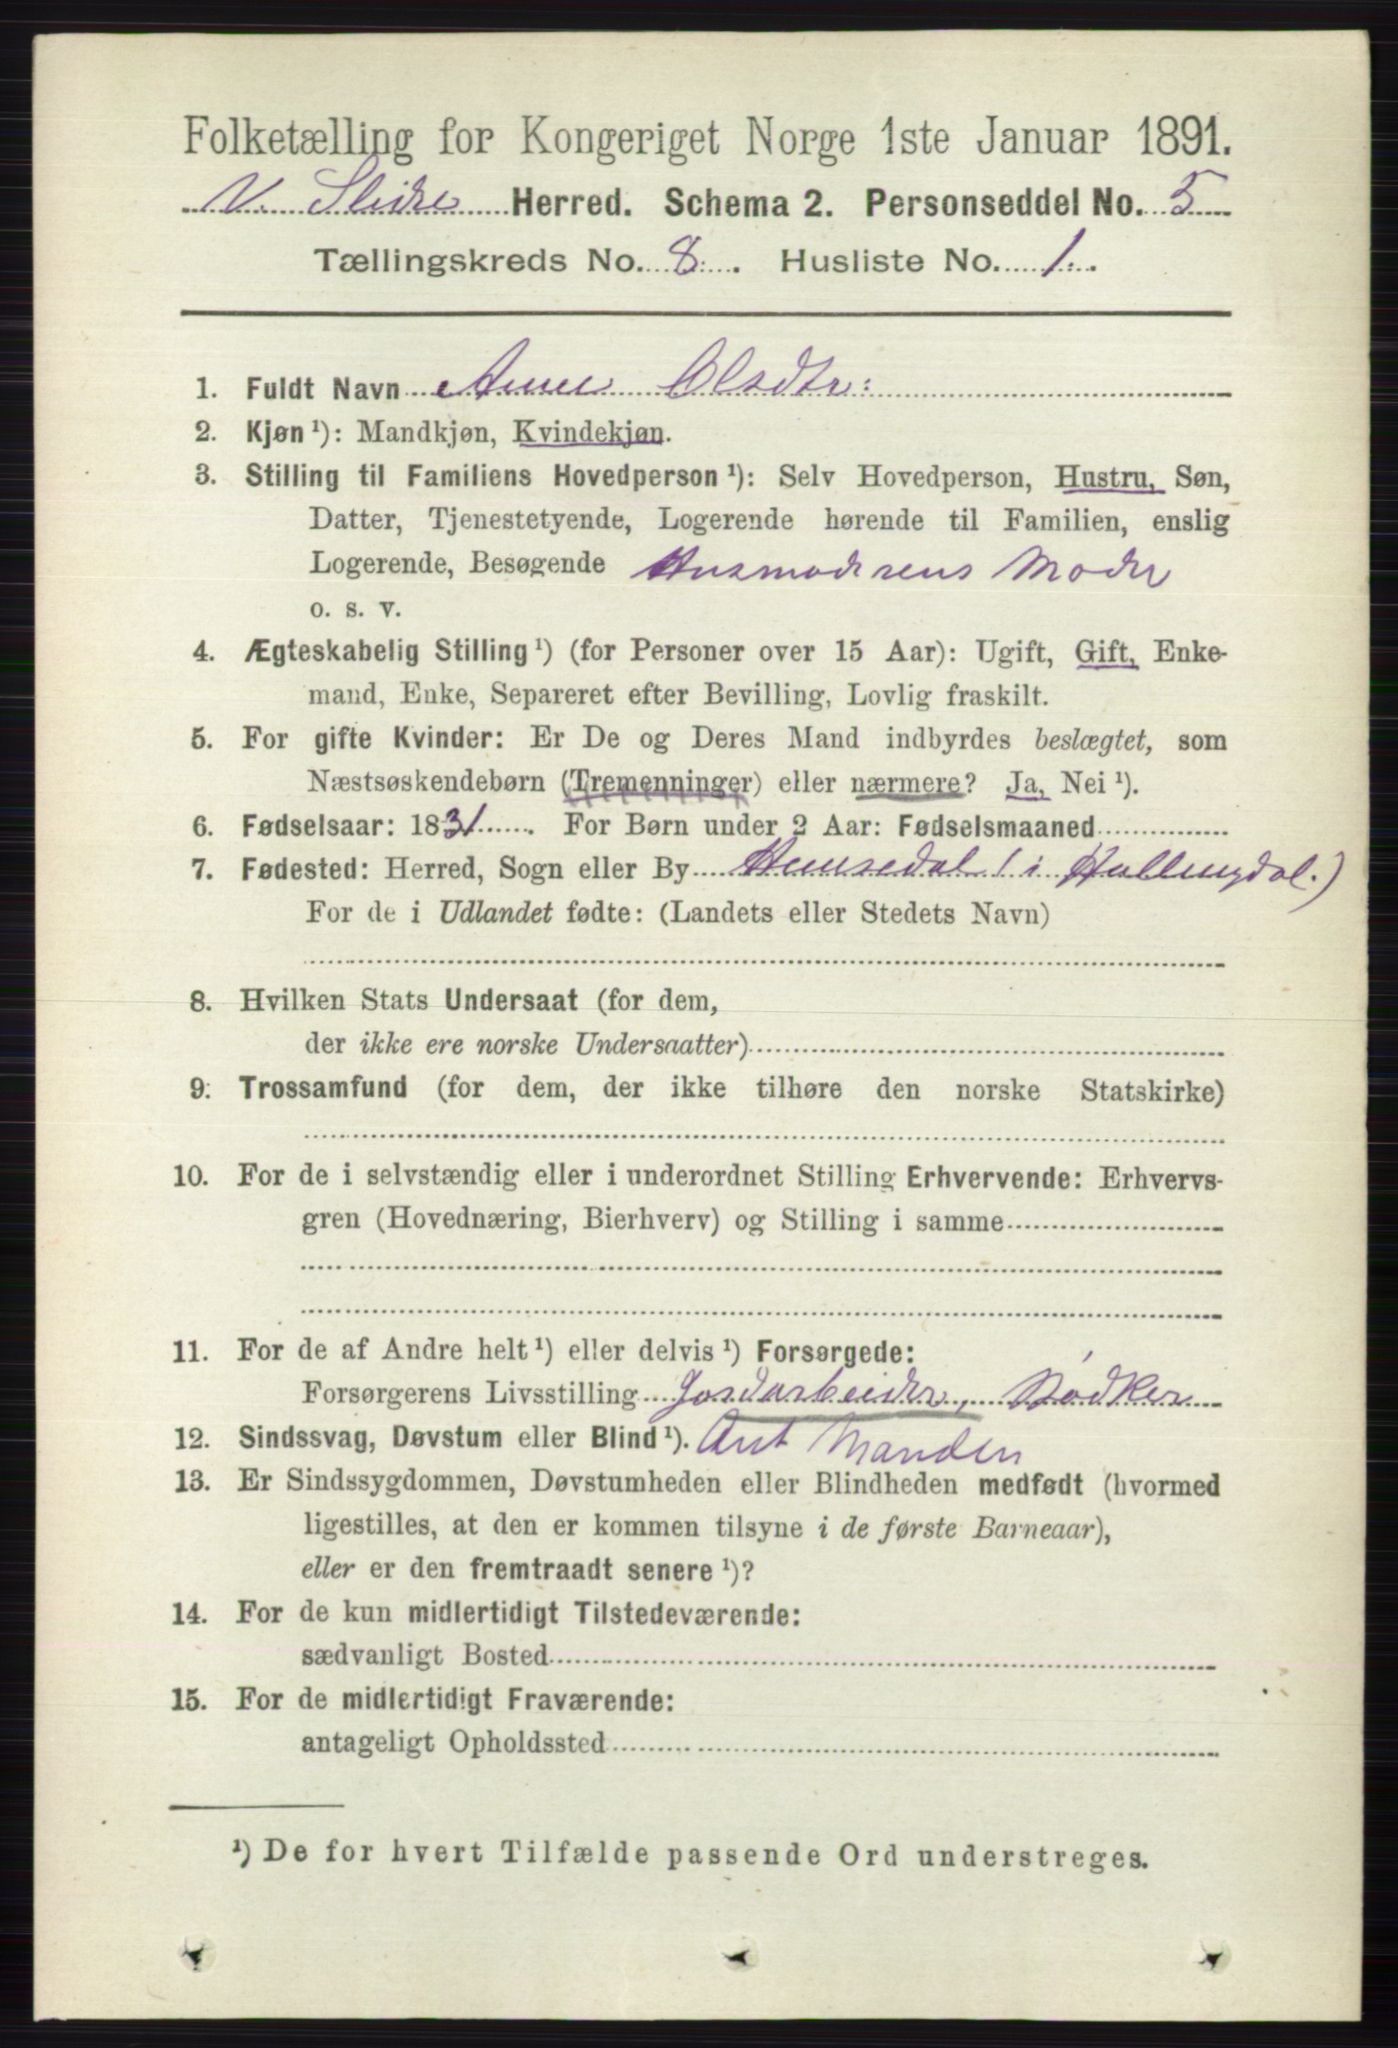 Folketælling for Kongeriget Norge 1ste Januar 1891.
V. Slidre Herred. Schema 2. Personseddel No. 5
Tællingskreds No. 8. Husliste No. 1.
1. Fuldt Navn Anne Olsdtr:
2. Kjøn ¹): Mandkjøn, Kvindekjøn.
3. Stilling til Familiens Hovedperson ¹): Selv Hovedperson, Hustru, Søn,
Datter, Tjenestetyende, Logerende hørende til Familien, enslig
Logerende, Besøgende Husmoderens Moder
o. s. v.
4. Ægteskabelig Stilling ¹) (for Personer over 15 Aar): Ugift, Gift, Enke-
mand, Enke, Separeret efter Bevilling, Lovlig fraskilt.
5. For gifte Kvinder: Er De og Deres Mand indbyrdes beslægtet, som
Næstsøskendebørn (Tremenninger) eller nærmere? Ja, Nei ¹).
6. Fødselsaar: 1831. For Børn under 2 Aar: Fødselsmaaned
7. Fødested: Herred, Sogn eller By Hemsedal (i Hallingdal.)
For de i Udlandet fødte: (Landets eller Stedets Navn)
8. Hvilken Stats Undersaat (for dem,
der ikke ere norske Undersaatter)
9. Trossamfund (for dem, der ikke tilhøre den norske Statskirke)
10. For de i selvstændig eller i underordnet Stilling Erhvervende: Erhvervs-
gren (Hovednæring, Bierhverv) og Stilling i samme
11. For de af Andre helt ¹) eller delvis ¹) Forsørgede:
Forsørgerens Livsstilling Jordarbeider, Bødker
12. Sindssvag, Døvstum eller Blind ¹). Manden
13. Er Sindssygdommen, Døvstumheden eller Blindheden medfødt (hvormed
ligestilles, at den er kommen tilsyne i de første Barneaar),
eller er den fremtraadt senere ¹)?
14. For de kun midlertidigt Tilstedeværende:
sædvanligt Bosted
15. For de midlertidigt Fraværende:
antageligt Opholdssted
¹) De for hvert Tilfælde passende Ord understreges.